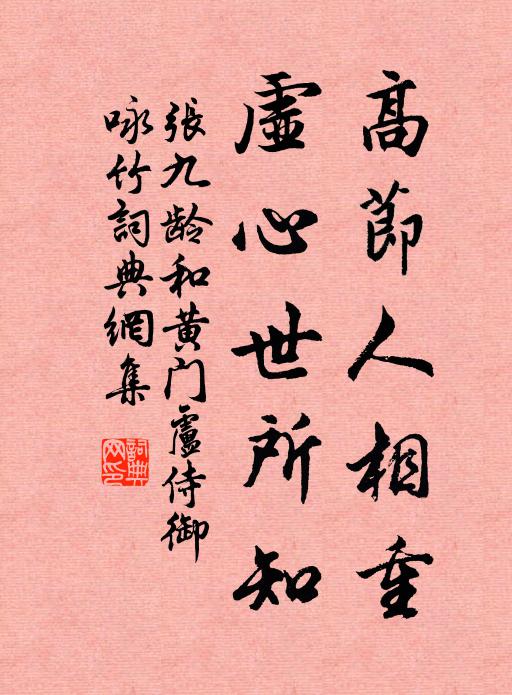 高節人相重
虛心世所知
張九龄和黄门盧侍御
咏竹詞典網集
詞典
网印